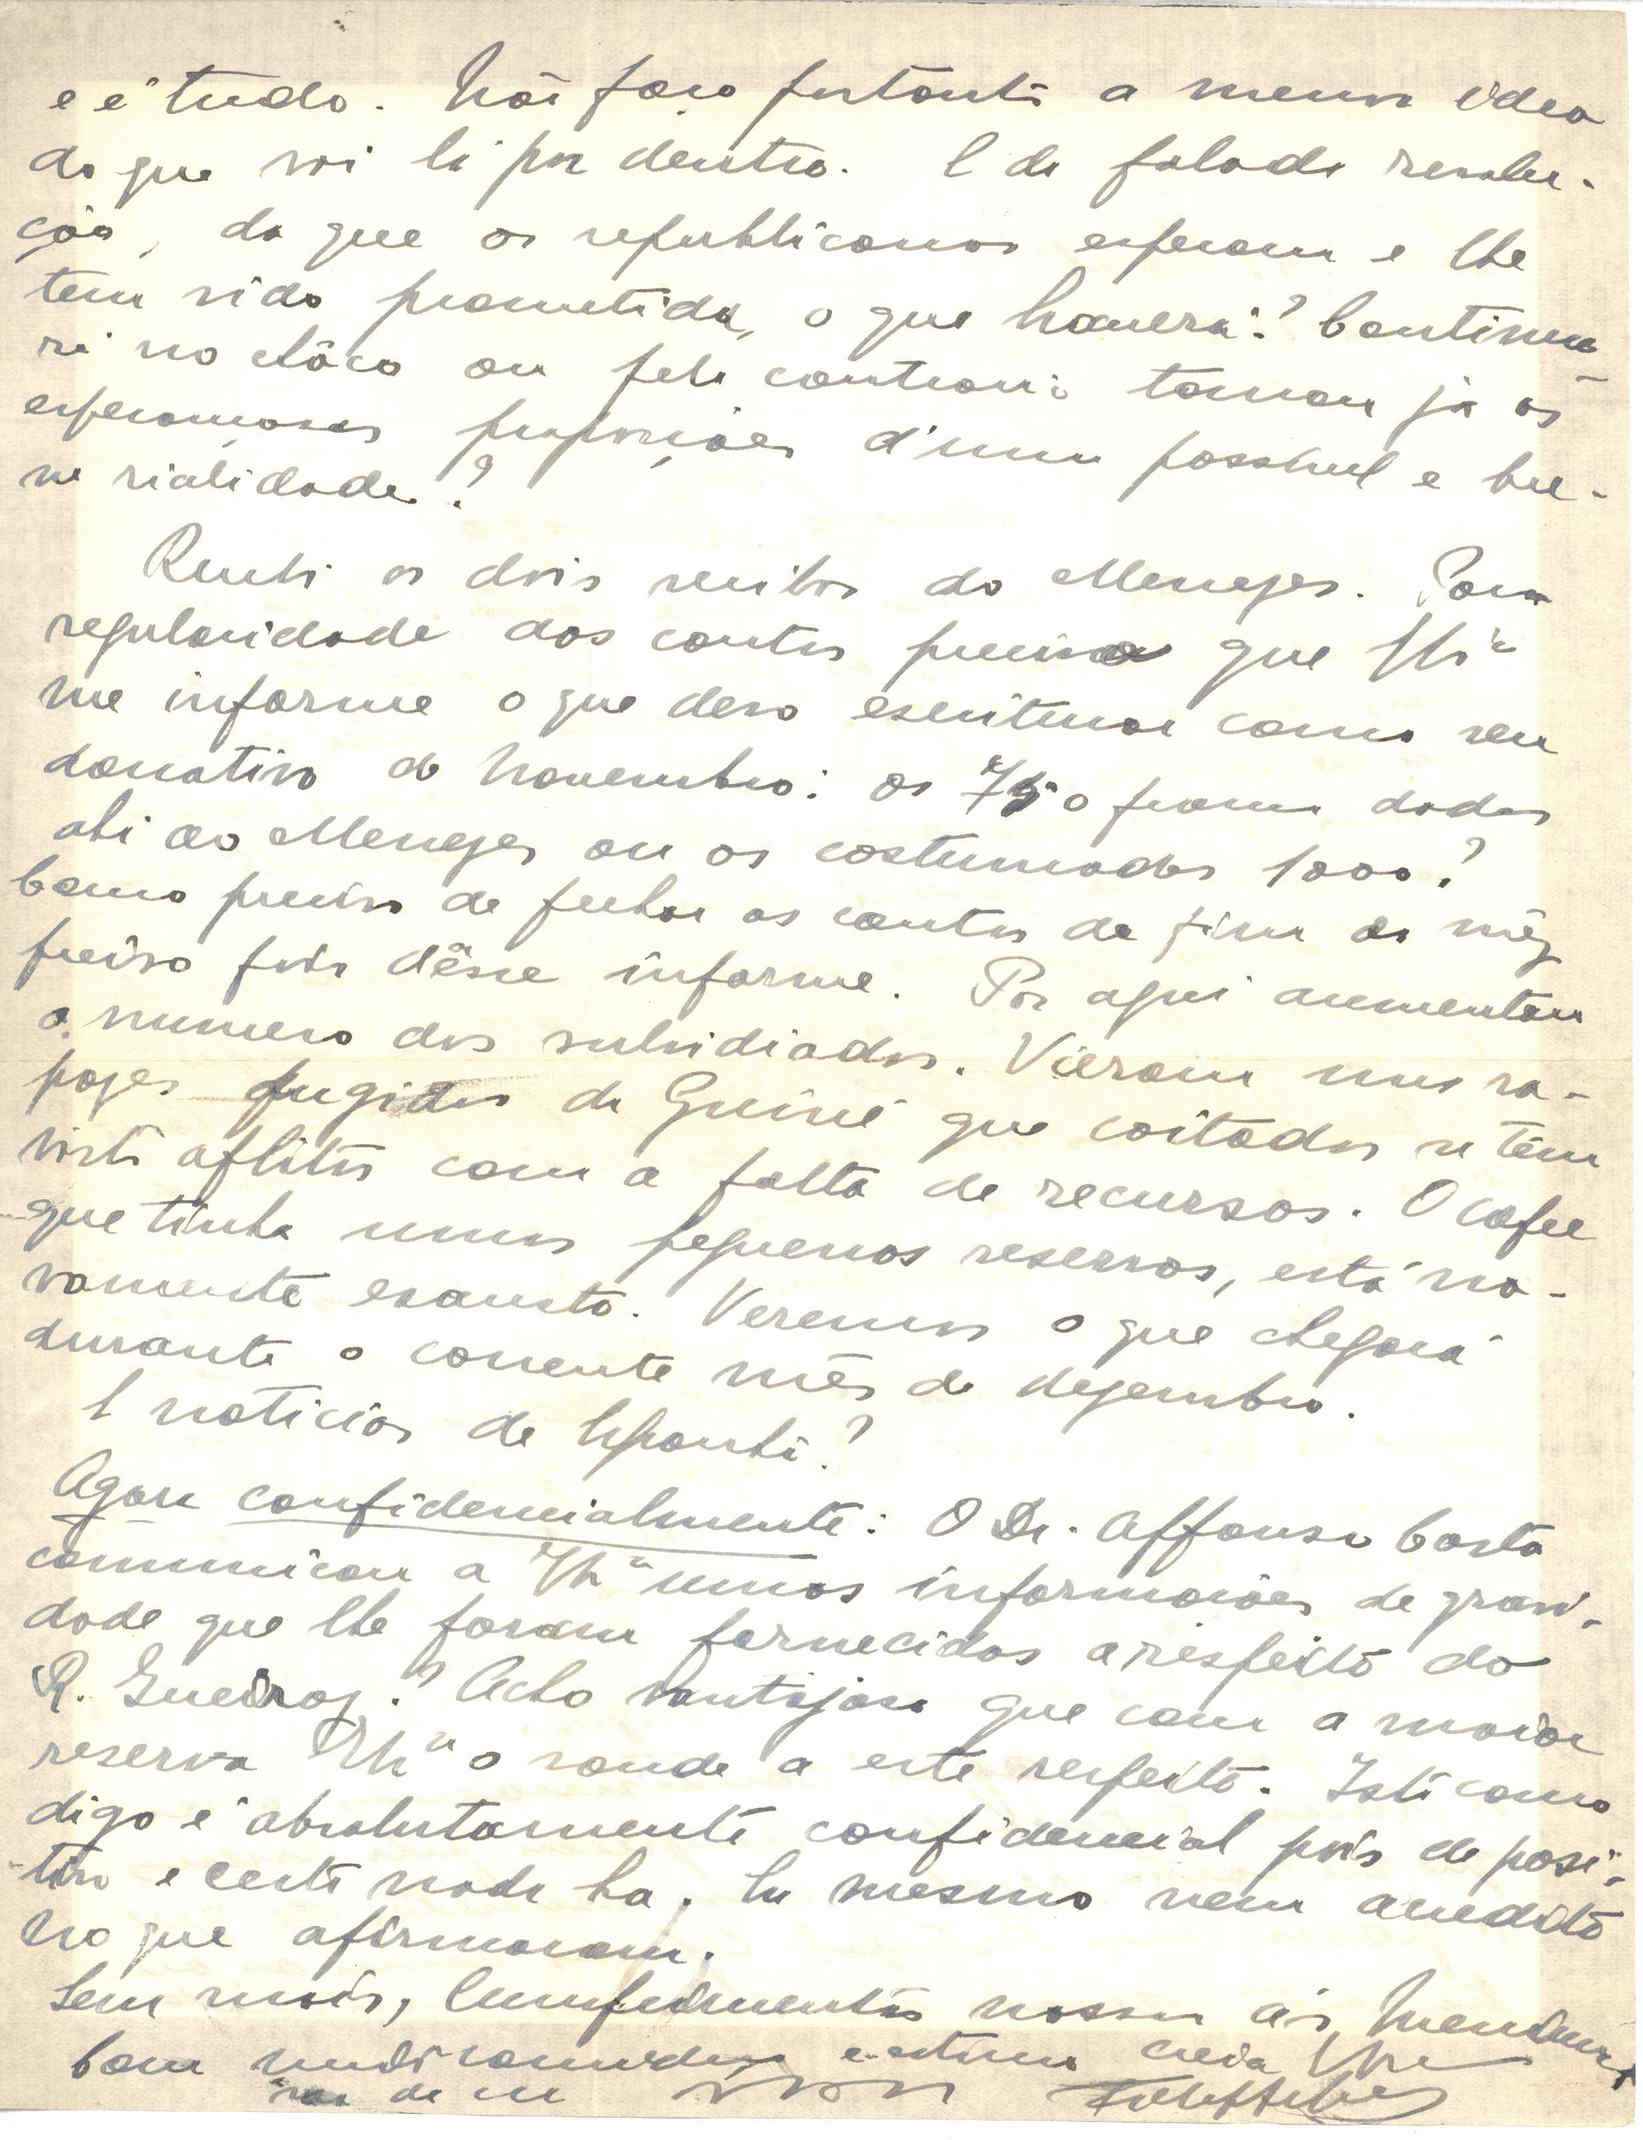 e é tudo. Não faço portanto a menor idea
do que vai lá por dentro. E da falada revolu-
ção, da que os republicanos esperam e lhe
tem sido prometida, o que haverá? Continua-
rá no chôco ou pelo contrario tomou já as
esperamosas proporções d'uma possivel e bre-
ve rialidade?
Recebi os dois recibos do Menezes. Para
regularidade das contas preciso que
me informe o que devo escriturar como seu
donativo de Novembro: os 750 francos dados
ahi ao Menezes ou os costumados 1000?
Como preciso de fechar as contas de fim do mêz
preciso pois dêsse informe. Por aqui aumentou
o numero dos subsidiados. Vieram uns ra-
pazes fugidos da Guiné que coitados se têm
visto aflitos com a falta de recursos. O cofre
que tinha umas pequenas reservas, está no-
vamente exausto. Veremos o que chegará
durante o corrente mês de dezembro.
E noticias de
Agora confidencialmente: O Dr. Affonso Costa
comunicou a umas informações de gravi-
dade que lhe foram fornecidas a respeito do
R. Queiroz? Acho vantajoso que com a maior
reserva o sonde a este respeito. Isto como
digo é absolutamente confidencial pois de posi-
tivo e certo nada ha. Eu mesmo nem acredito
no que afirmaram.
Sem mais, Cumprimentos nossos ás
Com muita consideração e estima creia